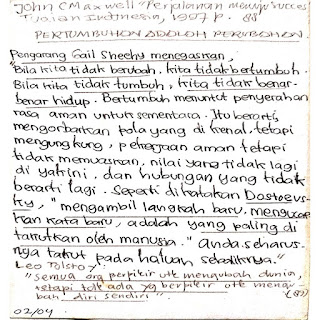 John C Maxwell "Perjalanan menuju succes"
Indonesia, 1997 p. 88
PERTUMBUHAN ADALAH PERUBAHAN
Pengarang Gail Sheehy menegaskan,
"Bila kita tidak berubah, kita tidak bertumbuh.
Bila kita tidak tumbuh, kita tidak benar-
benar hidup. Bertumbuh menuntut penyerahan
rasa aman untuk sementara. Itu berarti
mengorbankan pola yang dikenal, tetapi
mengungkung, pekerjaan aman tetapi
tidak memuaskan, nilai yang tidak lagi
di yakini, dan hubungan yang tidak
berarti lagi. Seperti dikatakan Dostoevs-
ky, "mengambil langkah baru, mengucap-
kan kata baru, adalah yang paling di
takutkan oleh manusia." Anda seharus-
nya takut pada haluan sebaliknya."
Leo Tolstoy:
"Semua org berpikir utk mengubah dunia,
tetapi tdk ada yg berpikir utk mengu-
bah diri sendiri"
02/04